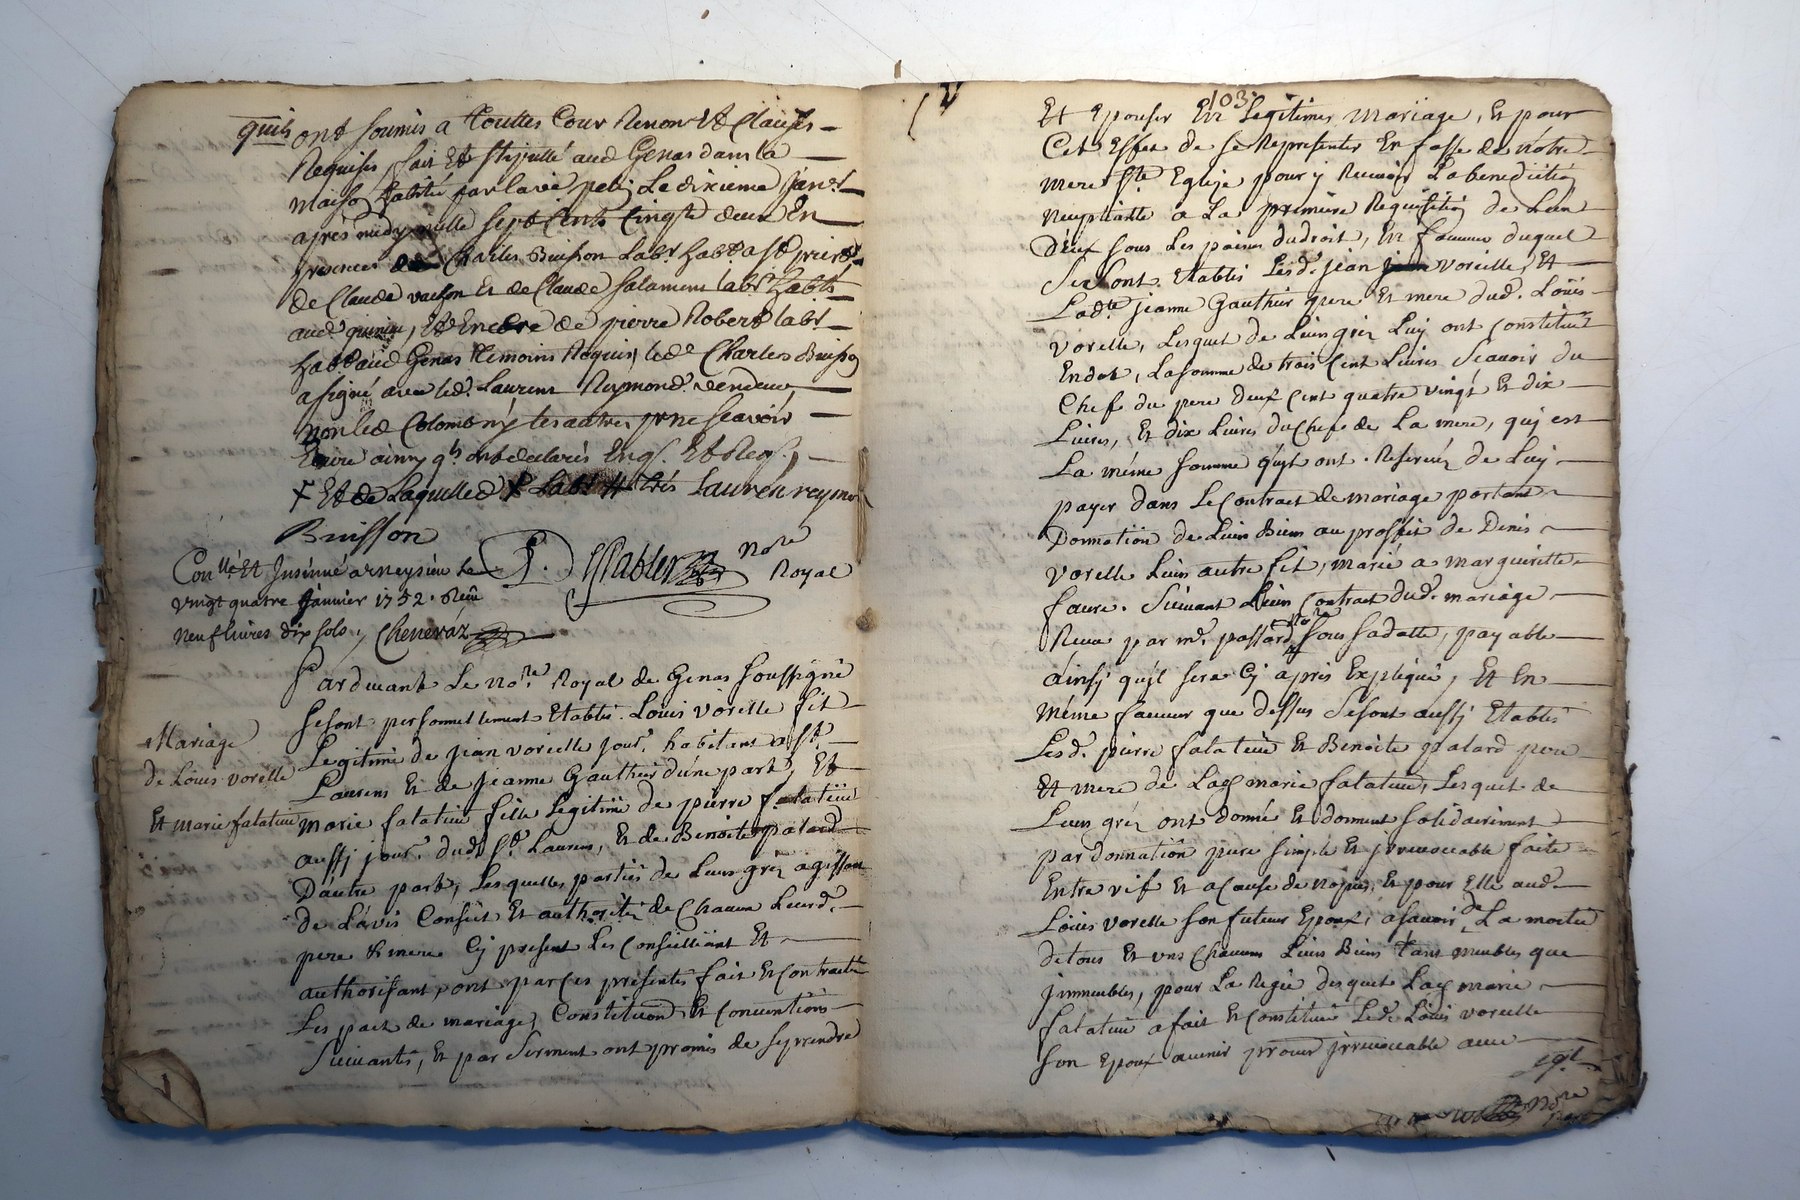 quils ont soumis a Touttes Cour Renon Et Clauses
Requises fait Et stipullé aud Genas dans la
maison habitée par la vie petit Le dixieme Janr
après midy mille sept Cents Cinqte deux En
presences de Charles Buisson Labr habt a St
de Claude vachon Et de Claude Salamens labr habts
aud Et Encore de pierre Robert labr
habt aud Genas Temoins Requis, led Charles Buisson
a signé avec led. Laurens Reymond vendeur
non led Colomb ny les autres pr ne scavoir
Ecrire ainsy qls ont declarés Enq. Et Req.
+ Et de Laquelle Lauren reymon
Buisson
Conllé Et Insinué a Meysieu le
vingt quatre Janvier 1752. Reçu
neuf livres dix sols, Chenevaz
nore
Royal
Pardevant Le nore Royal de Genas soussigné
se sont personnellement Etablis Louis vorelle fit
Legitime de jean vorielle jourr habitant a St
Laurens Et de jeanne Gauthier d'une part, Et
Mariage
de Louis vorelle
Et marie falatieu
marie falatieu fille Legitime de pierre falatieu
aussj jourr dudt St Laurens, Et de Benoite palard
D'autre part, Lesquelles parties de Leurs gréz agissant
de L'avis Conseil Et authorité de Chacun Leursd.
pere Et mere Cy present Les Conseilliant Et
authorisant, ont par Ces présentes fait Et Contracté
Les pact de mariage, Constitution Et Conventions
Suivantes, Et par Serment ont promis de se prendre
103
Et Epouser En Legitimes Mariage, Et pour
Cet Effet de se Représenter En fasse de nôtre
mere Ste Eglise pour y Recevoir La benediction
nuptialle a La première Requisition de L'un
D'eux sous Les peines du droit, En faveur duquel
Se sont Etablis Lesd. jean vorielle, Et
Ladte jeanne Gauthier pere Et mere dud. Loüis
vorelle, Lesquel de Leurs gréz Luy ont Constitué
En dot, La somme de trois Cent Livres Scavoir du
Chef du pere deux Cent quatre vingt Et dix
Livres, Et dix Livres du Chef de La mere, qui est
La même somme qu'jl ont Reservéz de Luy
payer dans Le Contract de mariage portant
Donnation de Leurs Biens au proffit de Denis
vorelle Leur autre fit, marié a marguerite
faure. Suivant Leur Contract dud. mariage
Recu par me passard nore sous sa datte, payable
ainsj qu'jl sera Cy après Expliqué, Et En
même faveur que dessus Se sont aussj Etablis
Lesd. pierre falatieu Et Benoite palard pere
Et mere de Lad marie falatieu, Lesquel de
Leurs gréz ont donné Et donnent solidairement
par donnation pure simple Et jrrevocable faite
Entre vif Et a Cause de nopces, Et pour Elle aud
Loüis vorelle son futeur Epoux, a scavoir de La moitié
de tous Et uns Chacuns Leurs Biens tant meubles que
jmmeubles, pour La Regie desquel Lad marie
falatieu a fait Et Constitué Led. Loüis vorielle
son Epoux avenir procur jrrevocable avec
nore